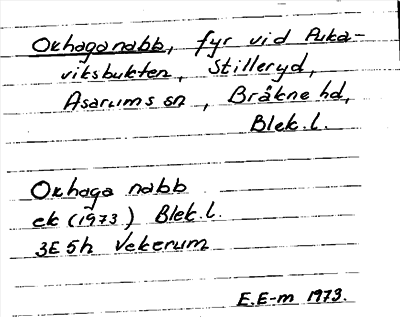 Oxhaganabb, fyr vid Puka-
viksbukten, Stilleryd,
Asarums sn, Bräkne hd,
Blek.l.
Oxhaga nabb
ek (1973) Blek.l.
3E 5h Vekerum
E.E-m 1973.